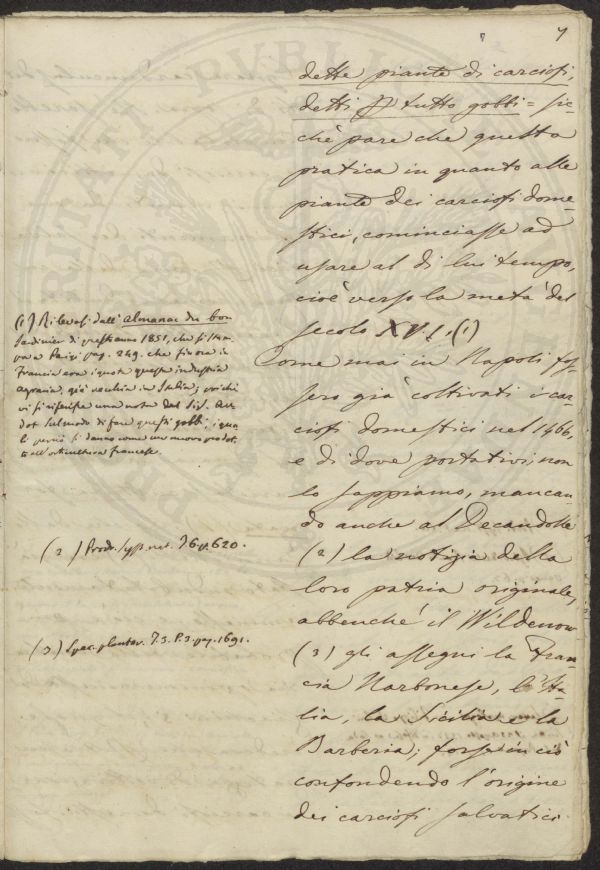 7
dette piante di carciofi,
detti p tutto gobbi = sic-
chè pare che questa
pratica in quanto alle
piante dei carciofi dome-
stici, cominciasse ad
usare al di lui tempo,
cioè verso la metà del
secolo XVI. (1)
Come mai in Napoli fos-
sero già coltivati i car-
ciofi domestici nel 1466,
e di dove portativi, non
lo sappiamo, mancan
do anche al Decandolle
(2) la notizia della
loro patria originale,
abbenchè il Wildenow
(3) gli assegni la Fran-
cia Narbonese, l'Ita-
lia, la Sicilia e la
Barberia; forse in ciò
confondendo l'origine
dei carciofi salvatici
(1) Rilevasi dall' almanac du bon
Jardinier di quest'anno 1851, che si stam-
pa a Parigi pag. 249. che finora in
Francia era ignota questa industria
agraria, già vecchia in Italia; poichè
vi si riferisce una nota del Sig.
sul modo di fare questi gobbi, i qua
li perciò si danno come un nuovo prodot-
to dell'orticultura francese.
(2) Prodr. Syst. nat. T. 6 p. 620.
(3) Spec. plantar. T. 3. P. 3. pag. 1691.